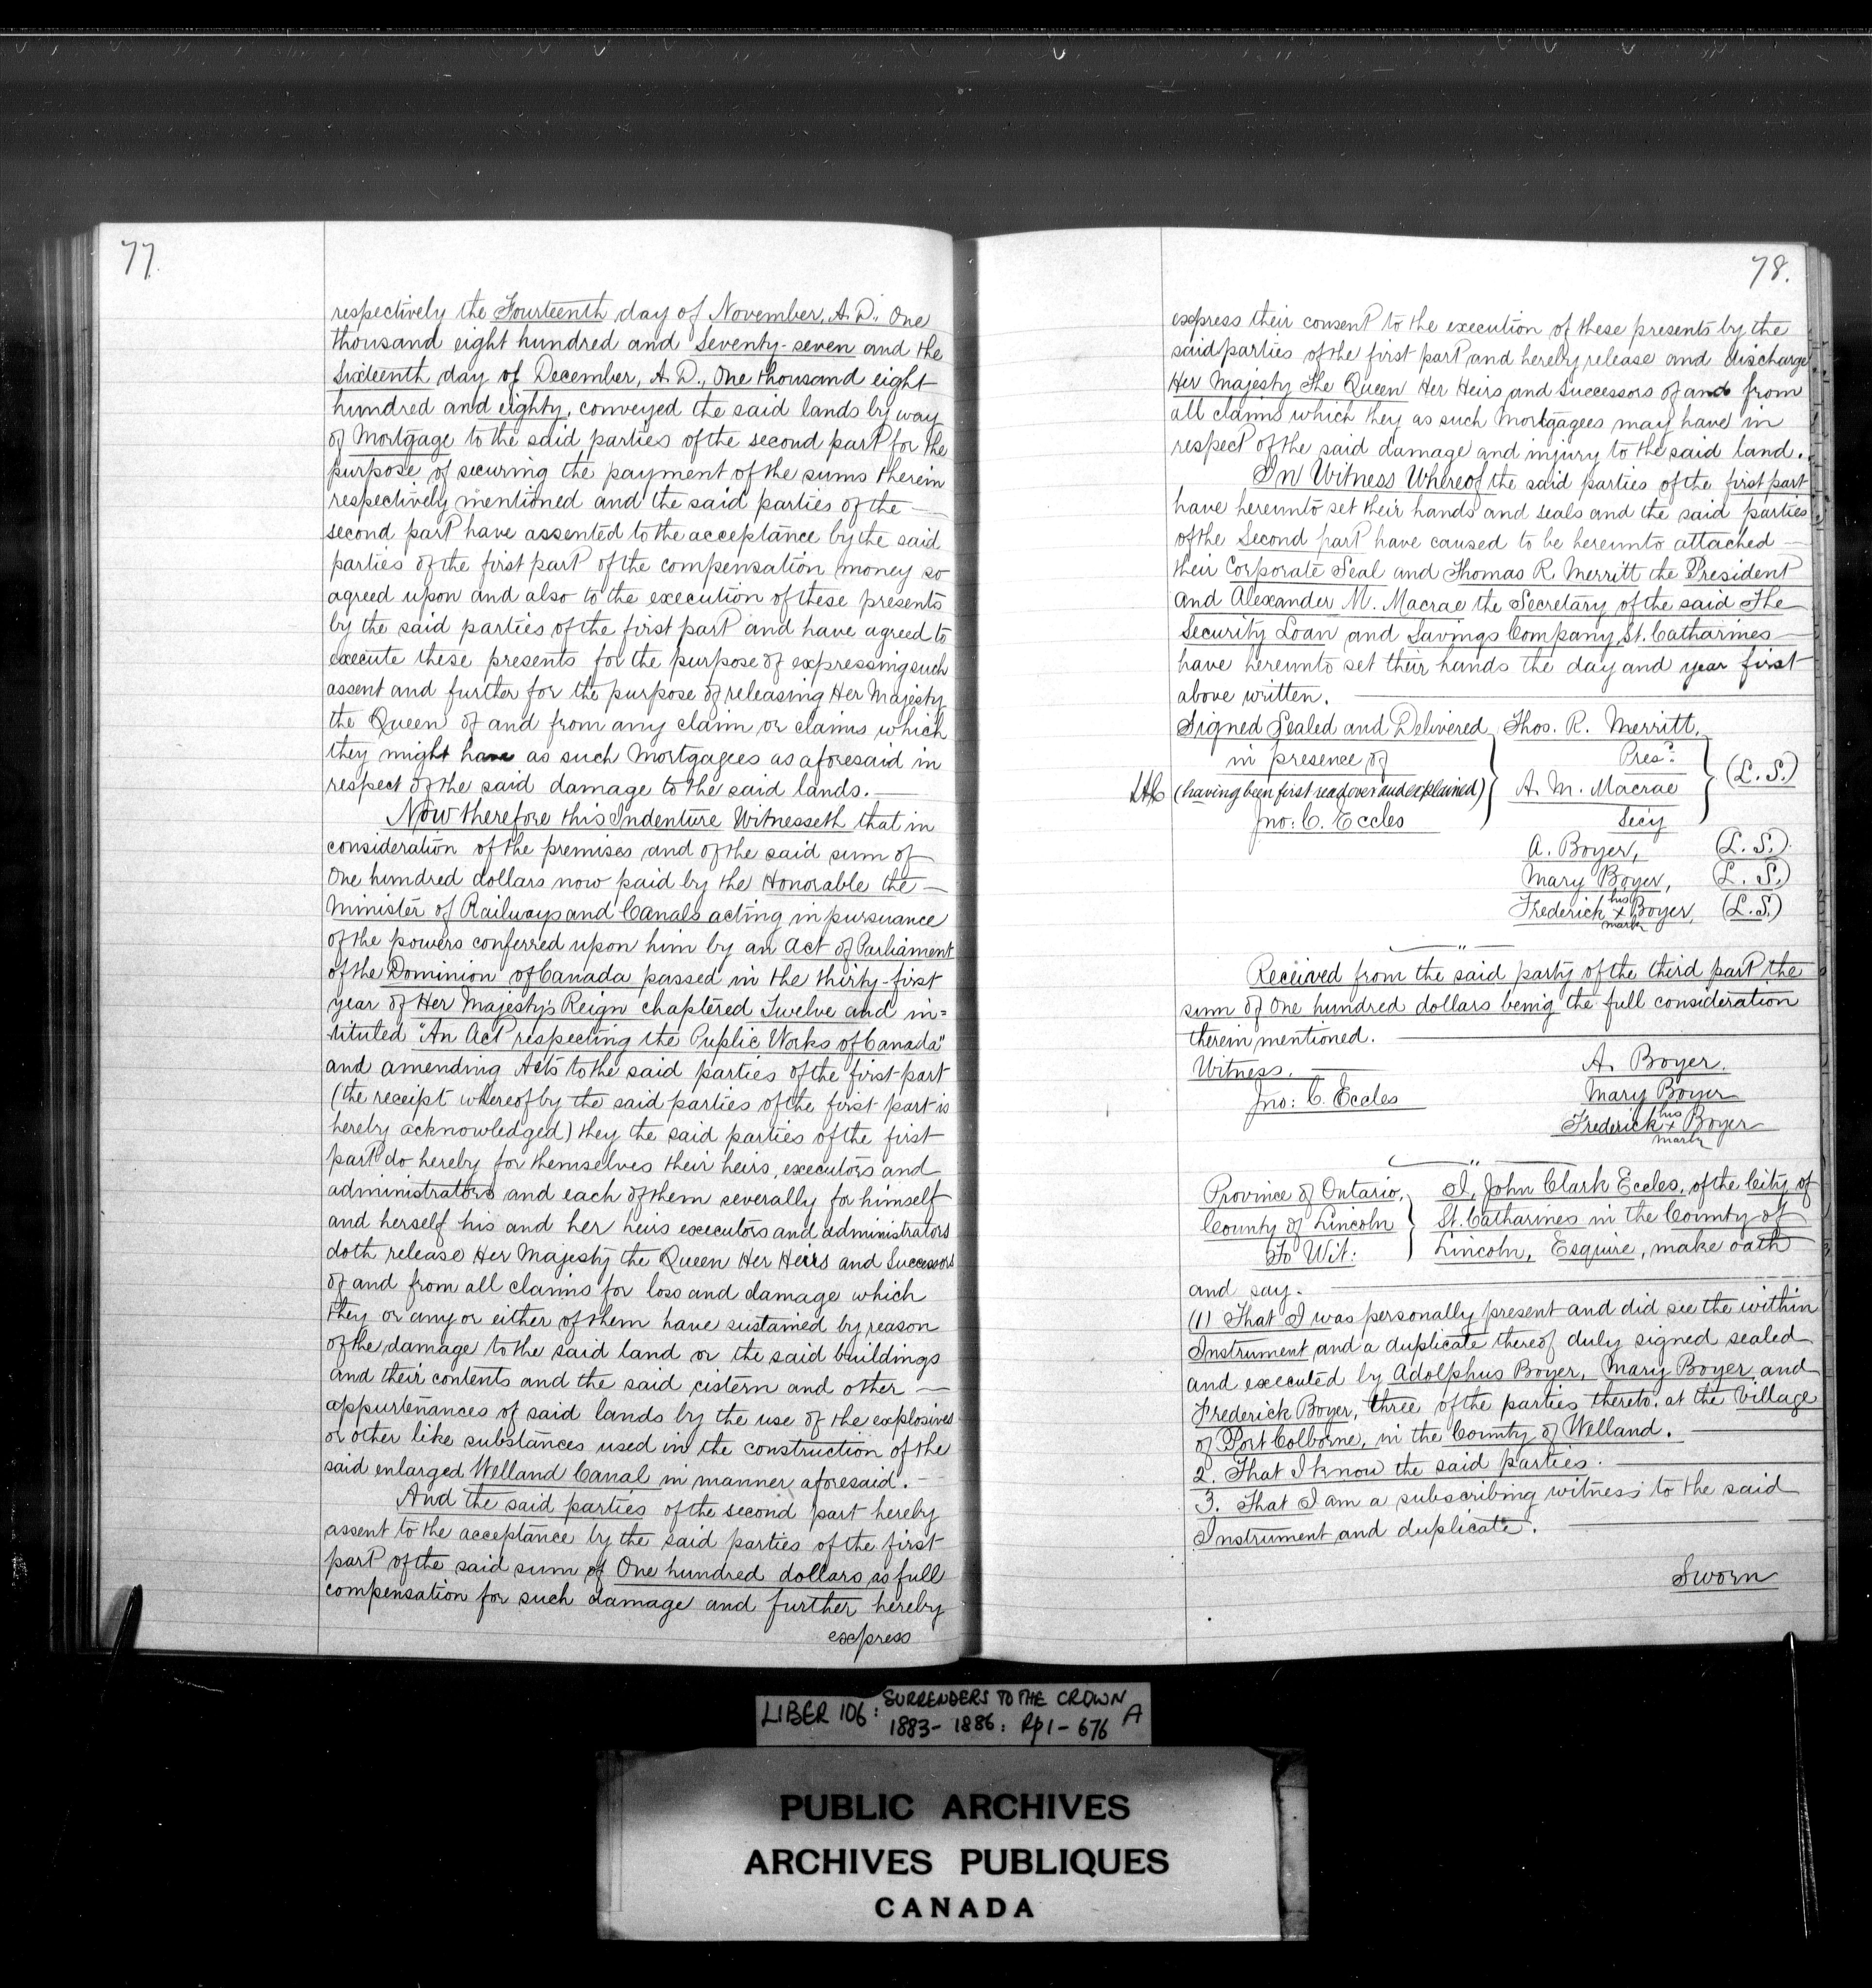 77.
respectively the Fourteenth day of November, A.D., One
thousand eight hundred and seventy-seven and the
Sixteenth day of December, A.D., One thousand eight
hundred and eighty, conveyed the said lands by way
of Mortgage to the said parties of the second part for the
purpose of securing the payment of the sums therein
respectively mentioned and the said parties of the —
second part have assented to the acceptance by the said
parties of the first part of the compensation money so
agreed upon and also to the execution of these presents
by the said parties of the first part and have agreed to
execute these presents for the purpose of expressing such
assent and further for the purpose of releasing Her Majesty
the Queen of and from any claim or claims which
they might have as such Mortgagees as aforesaid in
respect of the said damage to the said lands. —
Now therefore this Indenture Witnesseth that in
consideration of the premises and of the said sum of
One hundred dollars now paid by the Honorable the —
Minister of Railways and Canals acting in pursuance
of the powers conferred upon him by an Act of Parliament
of the Dominion of Canada passed in the thirty-first
year of Her Majesty's Reign chaptered Twelve and in=
tituted "An Act respecting the Public Works of Canada"
and amending Acts to the said parties of the first part
(the receipt whereof by the said parties of the first part is
hereby acknowledged) they the said parties of the first
part do hereby for themselves their heirs, executors and
administrators and each of them severally for himself
and herself his and her heirs executors and administrators
doth release Her Majesty the Queen Her Heirs and Successors
of and from all claims for loss and damage which
they or any or either of them have sustained by reason
of the damage to the said land or the said buildings
and their contents and the said cistern and other —
appurtenances of said lands by the use of the explosives
or other like substances used in the construction of the
said enlarged Welland Canal in manner aforesaid. —
And the said parties of the second part hereby
assent to the acceptance by the said parties of the first
part of the said sum of One hundred dollars as full
compensation for such damage and further hereby
express
78.
express their consent to the execution of these presents by the
said parties of the first part and hereby release and discharge
Her Majesty The Queen Her Heirs and Successors of and from
all claims which they as such Mortgagees may have in
respect of the said damage and injury to the said land.
In Witness Whereof the said parties of the first part
have hereunto set their hands and seals and the said parties
of the Second part have caused to be hereunto attached —
their Corporate Seal and Thomas R. Merritt the President
and Alexander M. Macrae the Secretary of the said The
Security Loan and Savings Company, St. Catharines —
have hereunto set their hands the day and year first
above written. —
Signed Sealed and Delivered Thos. R. Merritt,
in presence of Pres.
(having been first read over and explained) A. M. Macrae (L.S.)
Jno: C. Eccles Secy
A. Boyer, (L.S.)
Mary Boyer, (L.S.)
his
Frederick x Boyer, (L.S.)
mark
Received from the said party of the third part the
sum of One hundred dollars being the full consideration
therein mentioned. —
Witness. — A. Boyer.
Jno: C. Eccles Mary Boyer
his
Frederick x Boyer
mark
Province of Ontario, I, John Clark Eccles, of the City of
County of Lincoln St. Catharines in the County of
To Wit: Lincoln, Esquire, make oath
and say. —
(1) That I was personally present and did see the within
Instrument and a duplicate thereof duly signed sealed
and executed by Adolphus Boyer, Mary Boyer and
Frederick Boyer, three of the parties thereto, at the Village
of Port Colborne, in the County of Welland. —
2. That I know the said parties. —
3. That I am a subscribing witness to the said
Instrument and duplicate. —
Sworn
LIBER 106: SURRENDERS TO THE CROWN A
1883-1886: Pp 1-676
PUBLIC ARCHIVES
ARCHIVES PUBLIQUES
CANADA